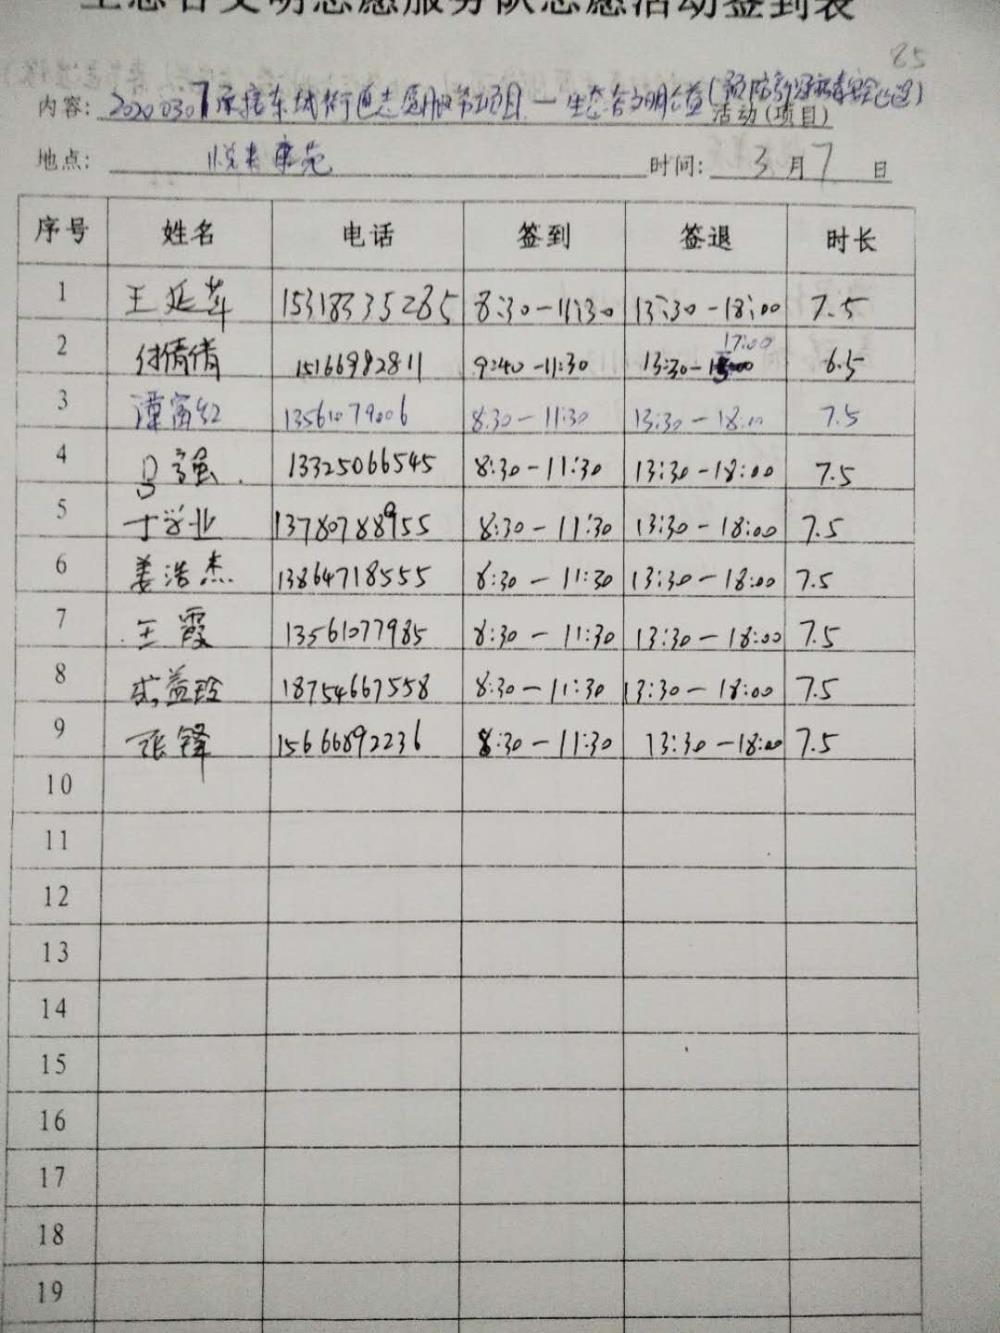 生态省文明志愿服务队志愿活动签到表
85
内容: 20200307承接东城街道志愿服务项目—生态省文明公益(预防新冠病毒
活动(项目)
地点: 悦来康苑 时间: 3月7日
序号 姓名 电话 签到 签退 时长
1 王延萍 15318335285 8:30-11:30 13:30-18:00 7.5
2 付倩倩 15166982811 9:40-11:30 13:30- 17:00 6.5
3 谭富红 13561079006 8:30-11:30 13:30-18:00 7.5
4 吕强 13325066545 8:30-11:30 13:30-18:00 7.5
5 丁学业 13780788955 8:30-11:30 13:30-18:00 7.5
6 姜浩杰 13864718555 8:30-11:30 13:30-18:00 7.5
7 王霞 13561077985 8:30-11:30 13:30-18:00 7.5
8 18754667558 8:30-11:30 13:30-18:00 7.5
9 张锋 15666892236 8:30-11:30 13:30-18:00 7.5
10
11
12
13
14
15
16
17
18
19